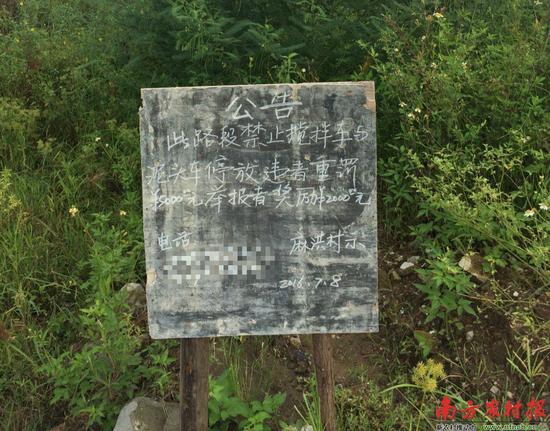 公告
此路段禁止搅拌车与
泥头车停放违者重罚
¥5000元举报者奖励¥2000元
电话:
麻洪村示
2016.7.8
南方农村报